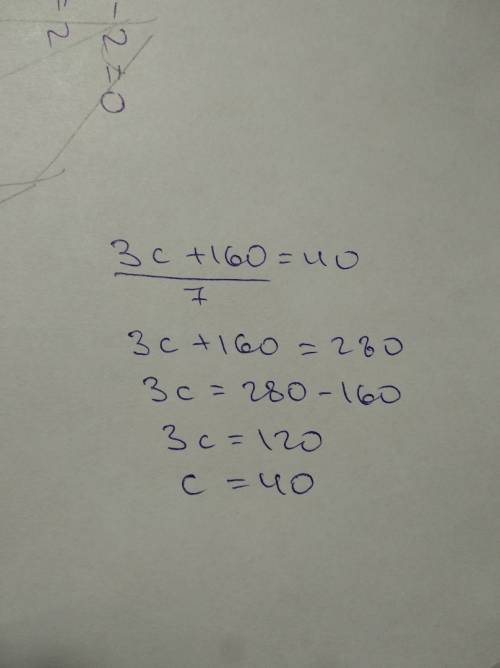 - 2 = 0
= 2
3c + 160 = 40
7
3c + 160 = 280
3c = 280 - 160
3c = 120
c = 40